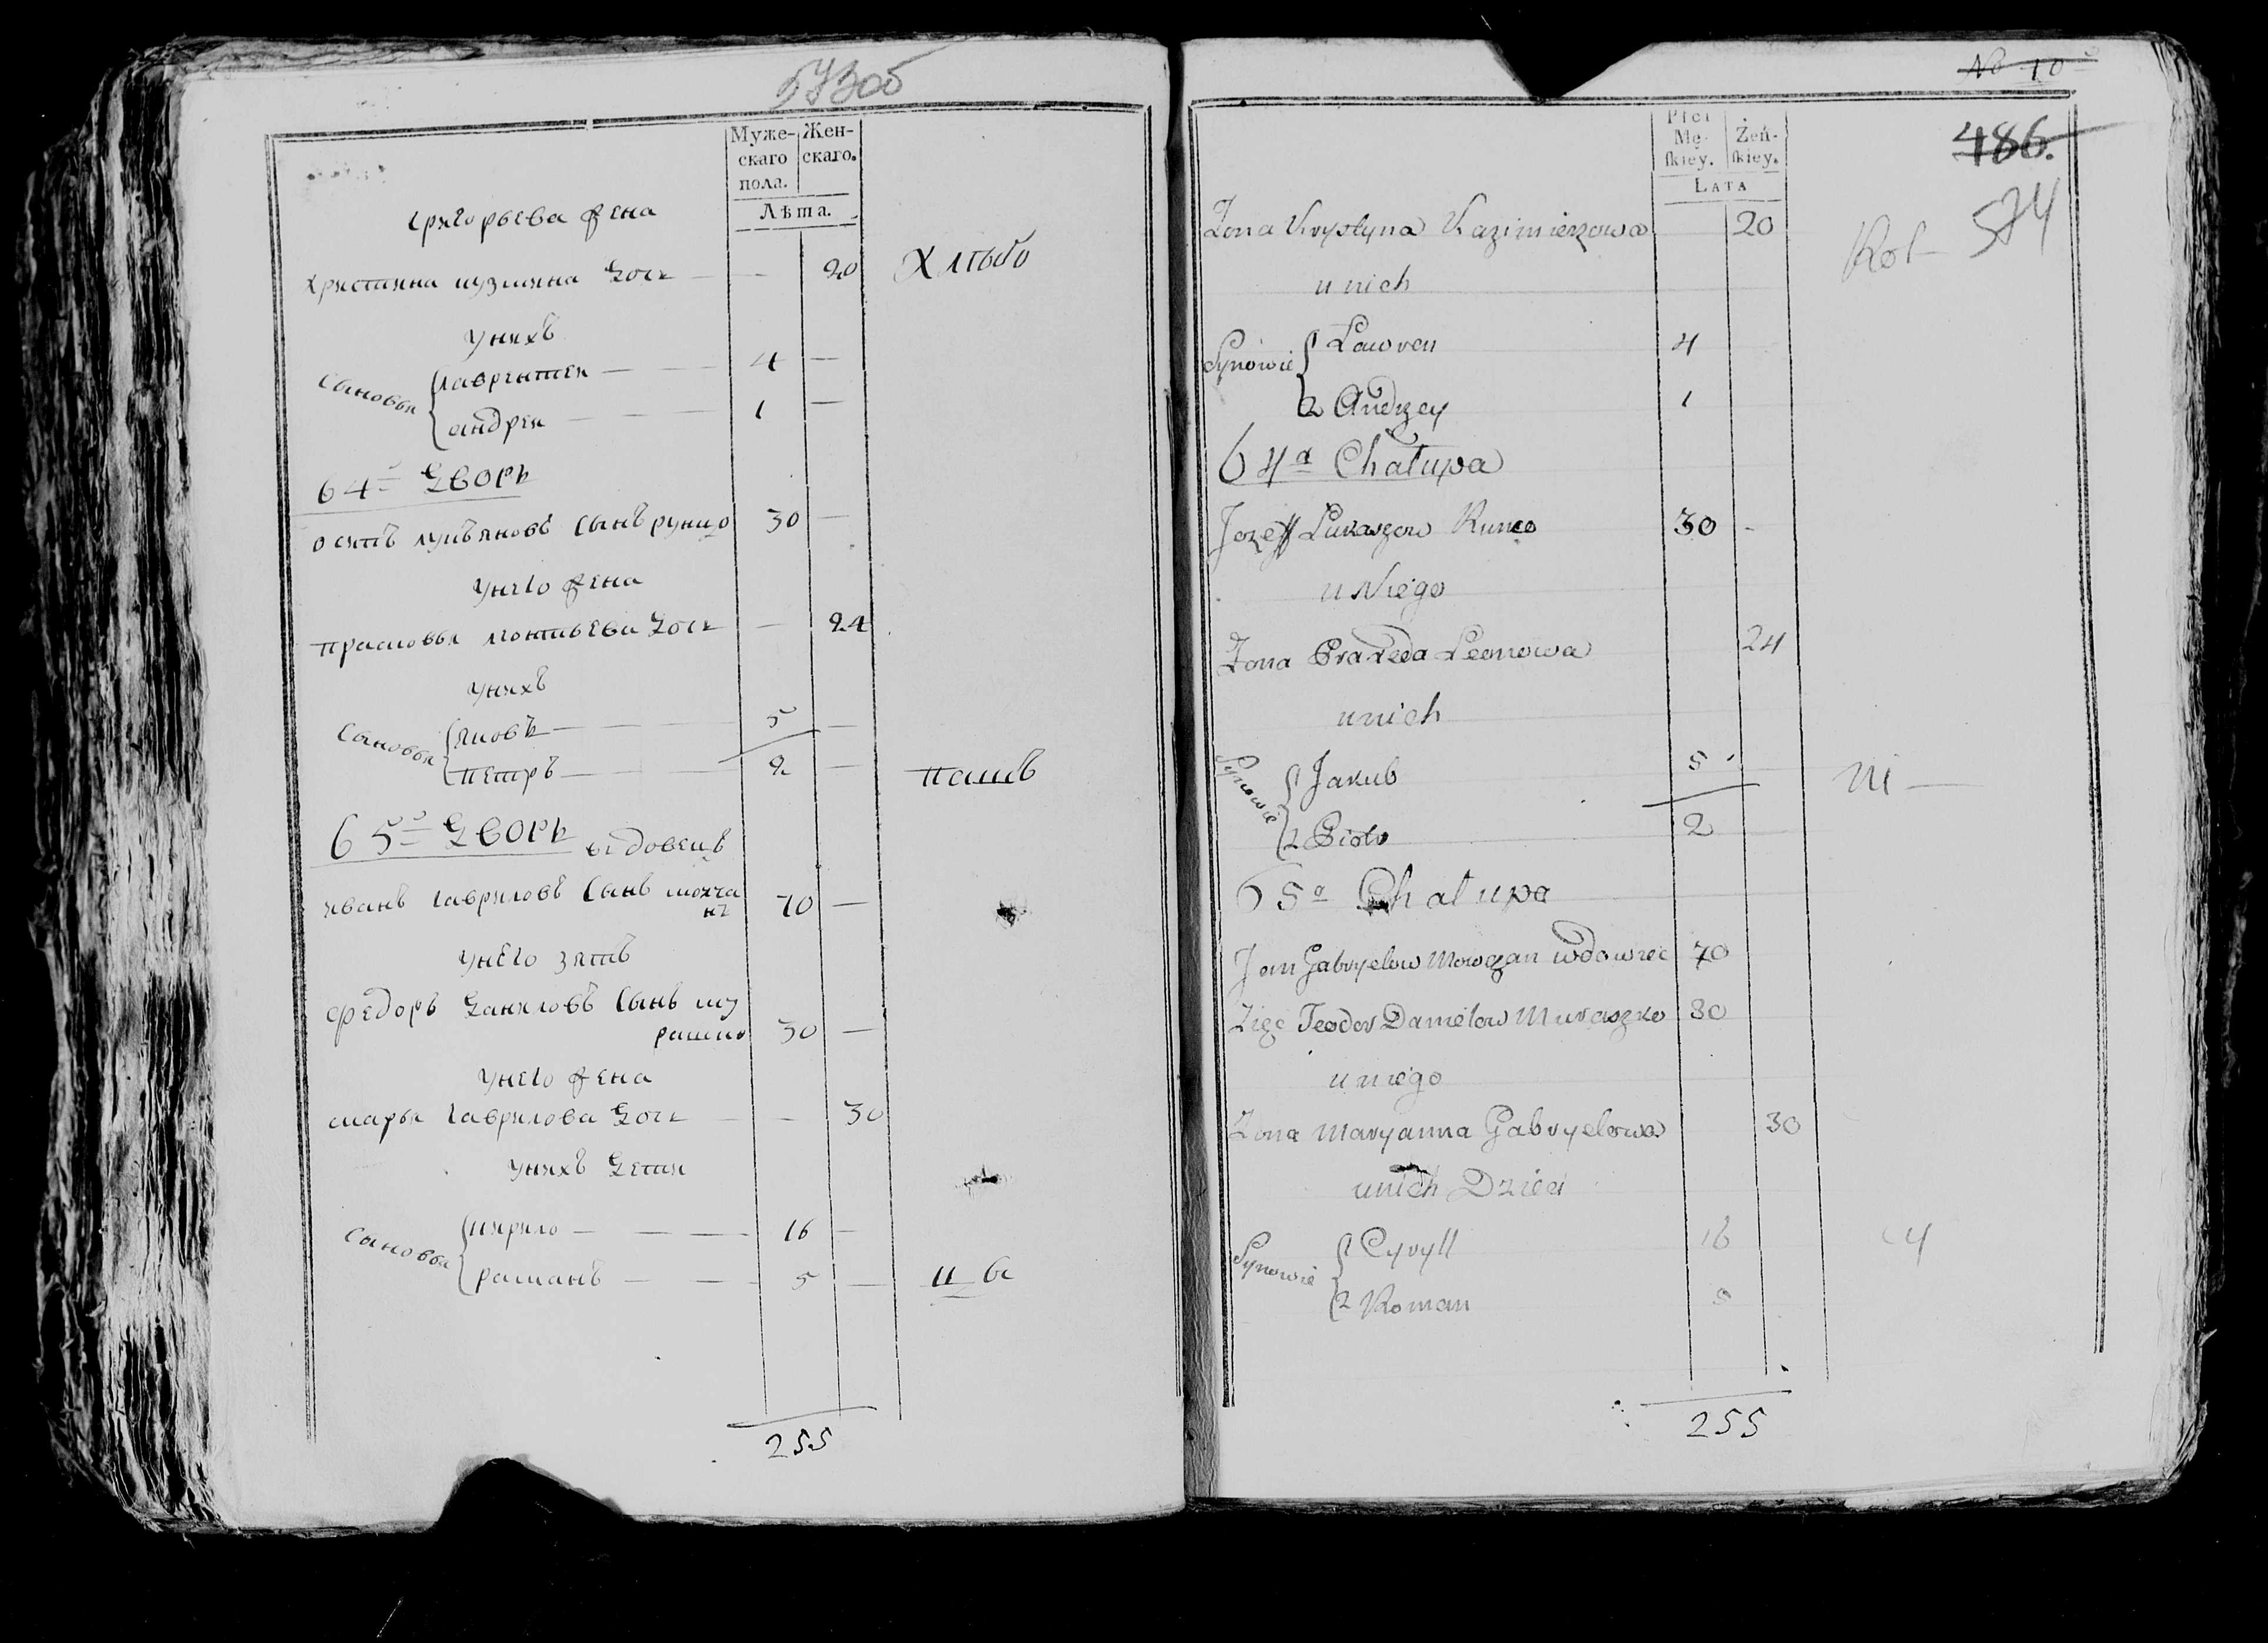 573об
Муже-
скаго
пола.
Жен-
скаго.
Лѣта.
григорьева жена
христина кузмина дочь — — 20
унихъ
Сыновья
лаврентей — — 4 —
андрей — — 1 —
64й дворъ
осипъ лукъяновъ сынъ рунцо 30 —
унего жена
прасковья леонтьева дочь — 24
унихъ
Сыновья
яковъ — — 5 —
петръ — — 2 —
65й дворъ вдовецъ
иванъ гавриловъ сынъ молча
нъ 70 —
унего зять
федоръ даниловъ сынъ му
рашко 30 —
унего жена
марья гаврилова дочь — — 30
унихъ дети
Сыновья
кирило — — 16 —
раманъ — — 5 —
255
№ 10
486.
574
Płci
Mę-
skiey.
Żeń-
skiey.
Lata
Żona Krystyna Kazimierzowa 20
u nich
Synowie
Lawren 4
2 Andrzey 1
64a Chałupa
Jozeff Łukaszow Runco 30 -
u Niego
Żona Praxeda Leonowa 24
unich
Synowie
Jakub 5
2 Piotr 2
65a Chałupa
Jan Gabryelow Mowczan wdowiec 70
Zięc Teodor Daniełow Muraszko 30
uniego
Żona Maryanna Gabryelowa 30
unich Dzieci
Synowie
Cyryll 16
2 Roman 5
255